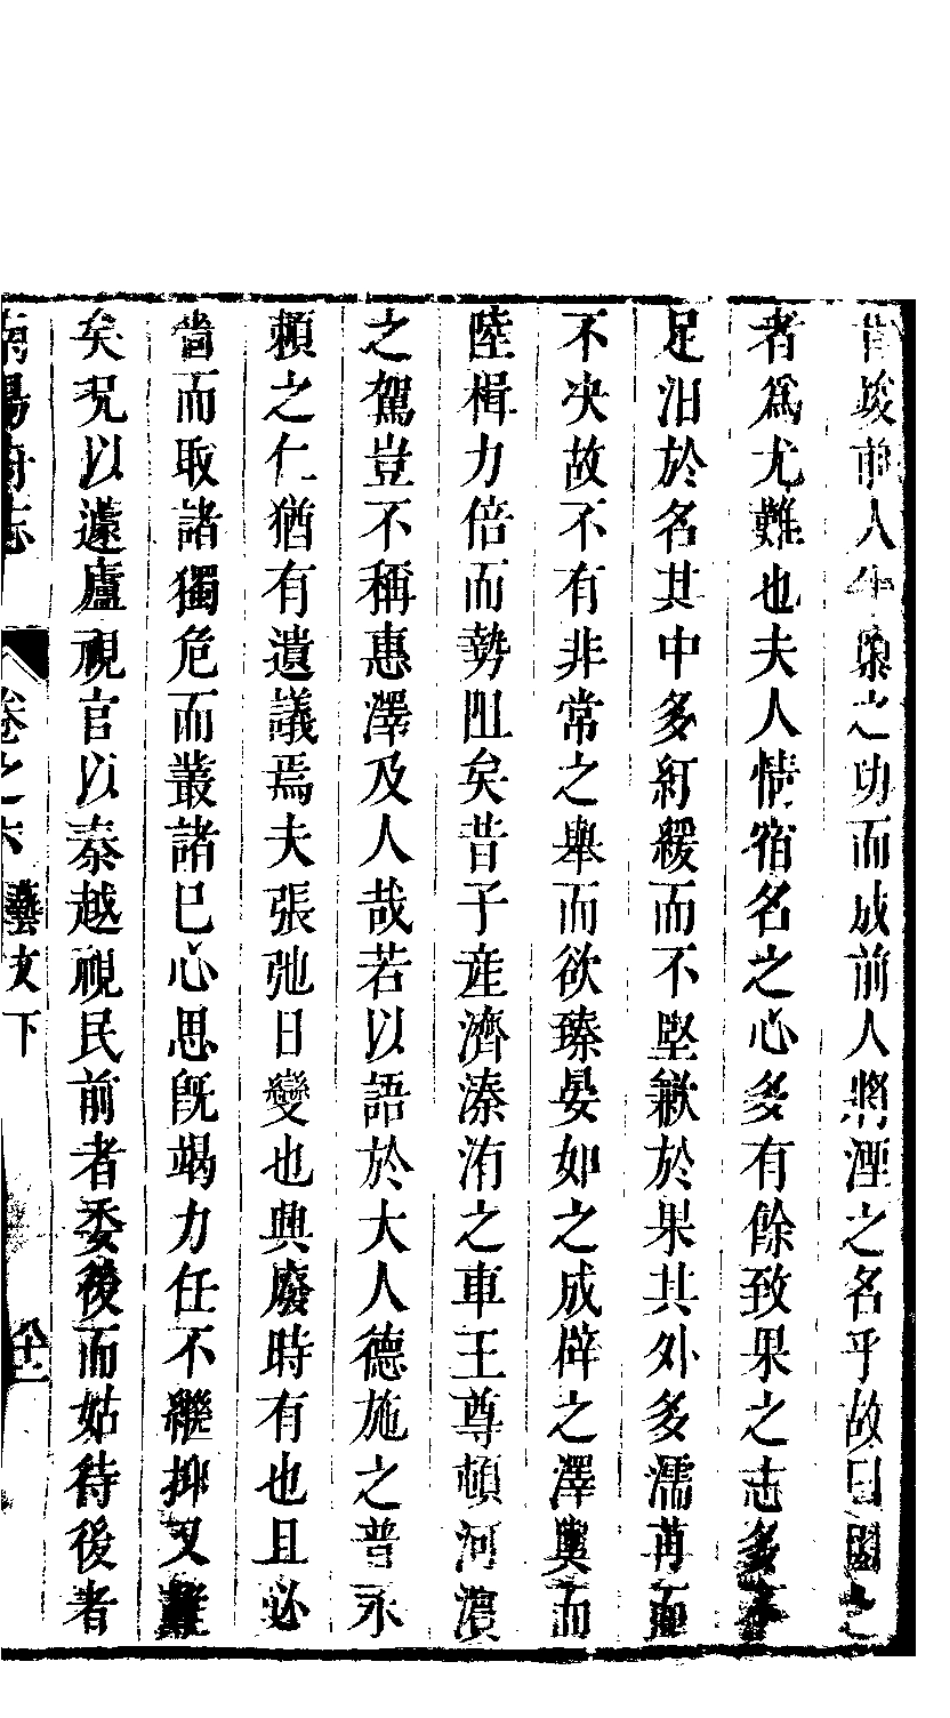 肯竣前人午㡣之功而成前人將湮之名乎故曰因之
者爲尤難也夫人情宿名之心多有餘致果之志多不
足汨於名其中多紆緩而不堅歉於果共外多濡苒而
不决故不有非常之舉而欲臻晏如之成辟之澤輿而
陸楫力倍而勢阻矣昔子產濟溱洧之車王尊頓河濆
之駕豈不稱惠澤及人哉若以語於大人德施之普永
頼之仁猶有遺議焉夫張弛日變也典廢時有也且必
嘗而取諸獨危而叢諸巳心思旣竭力任不繼抑又難
矣况以蘧廬視官以秦越視民前者委後而姑待後者
南陽府志 卷之六 藝文下 八十二